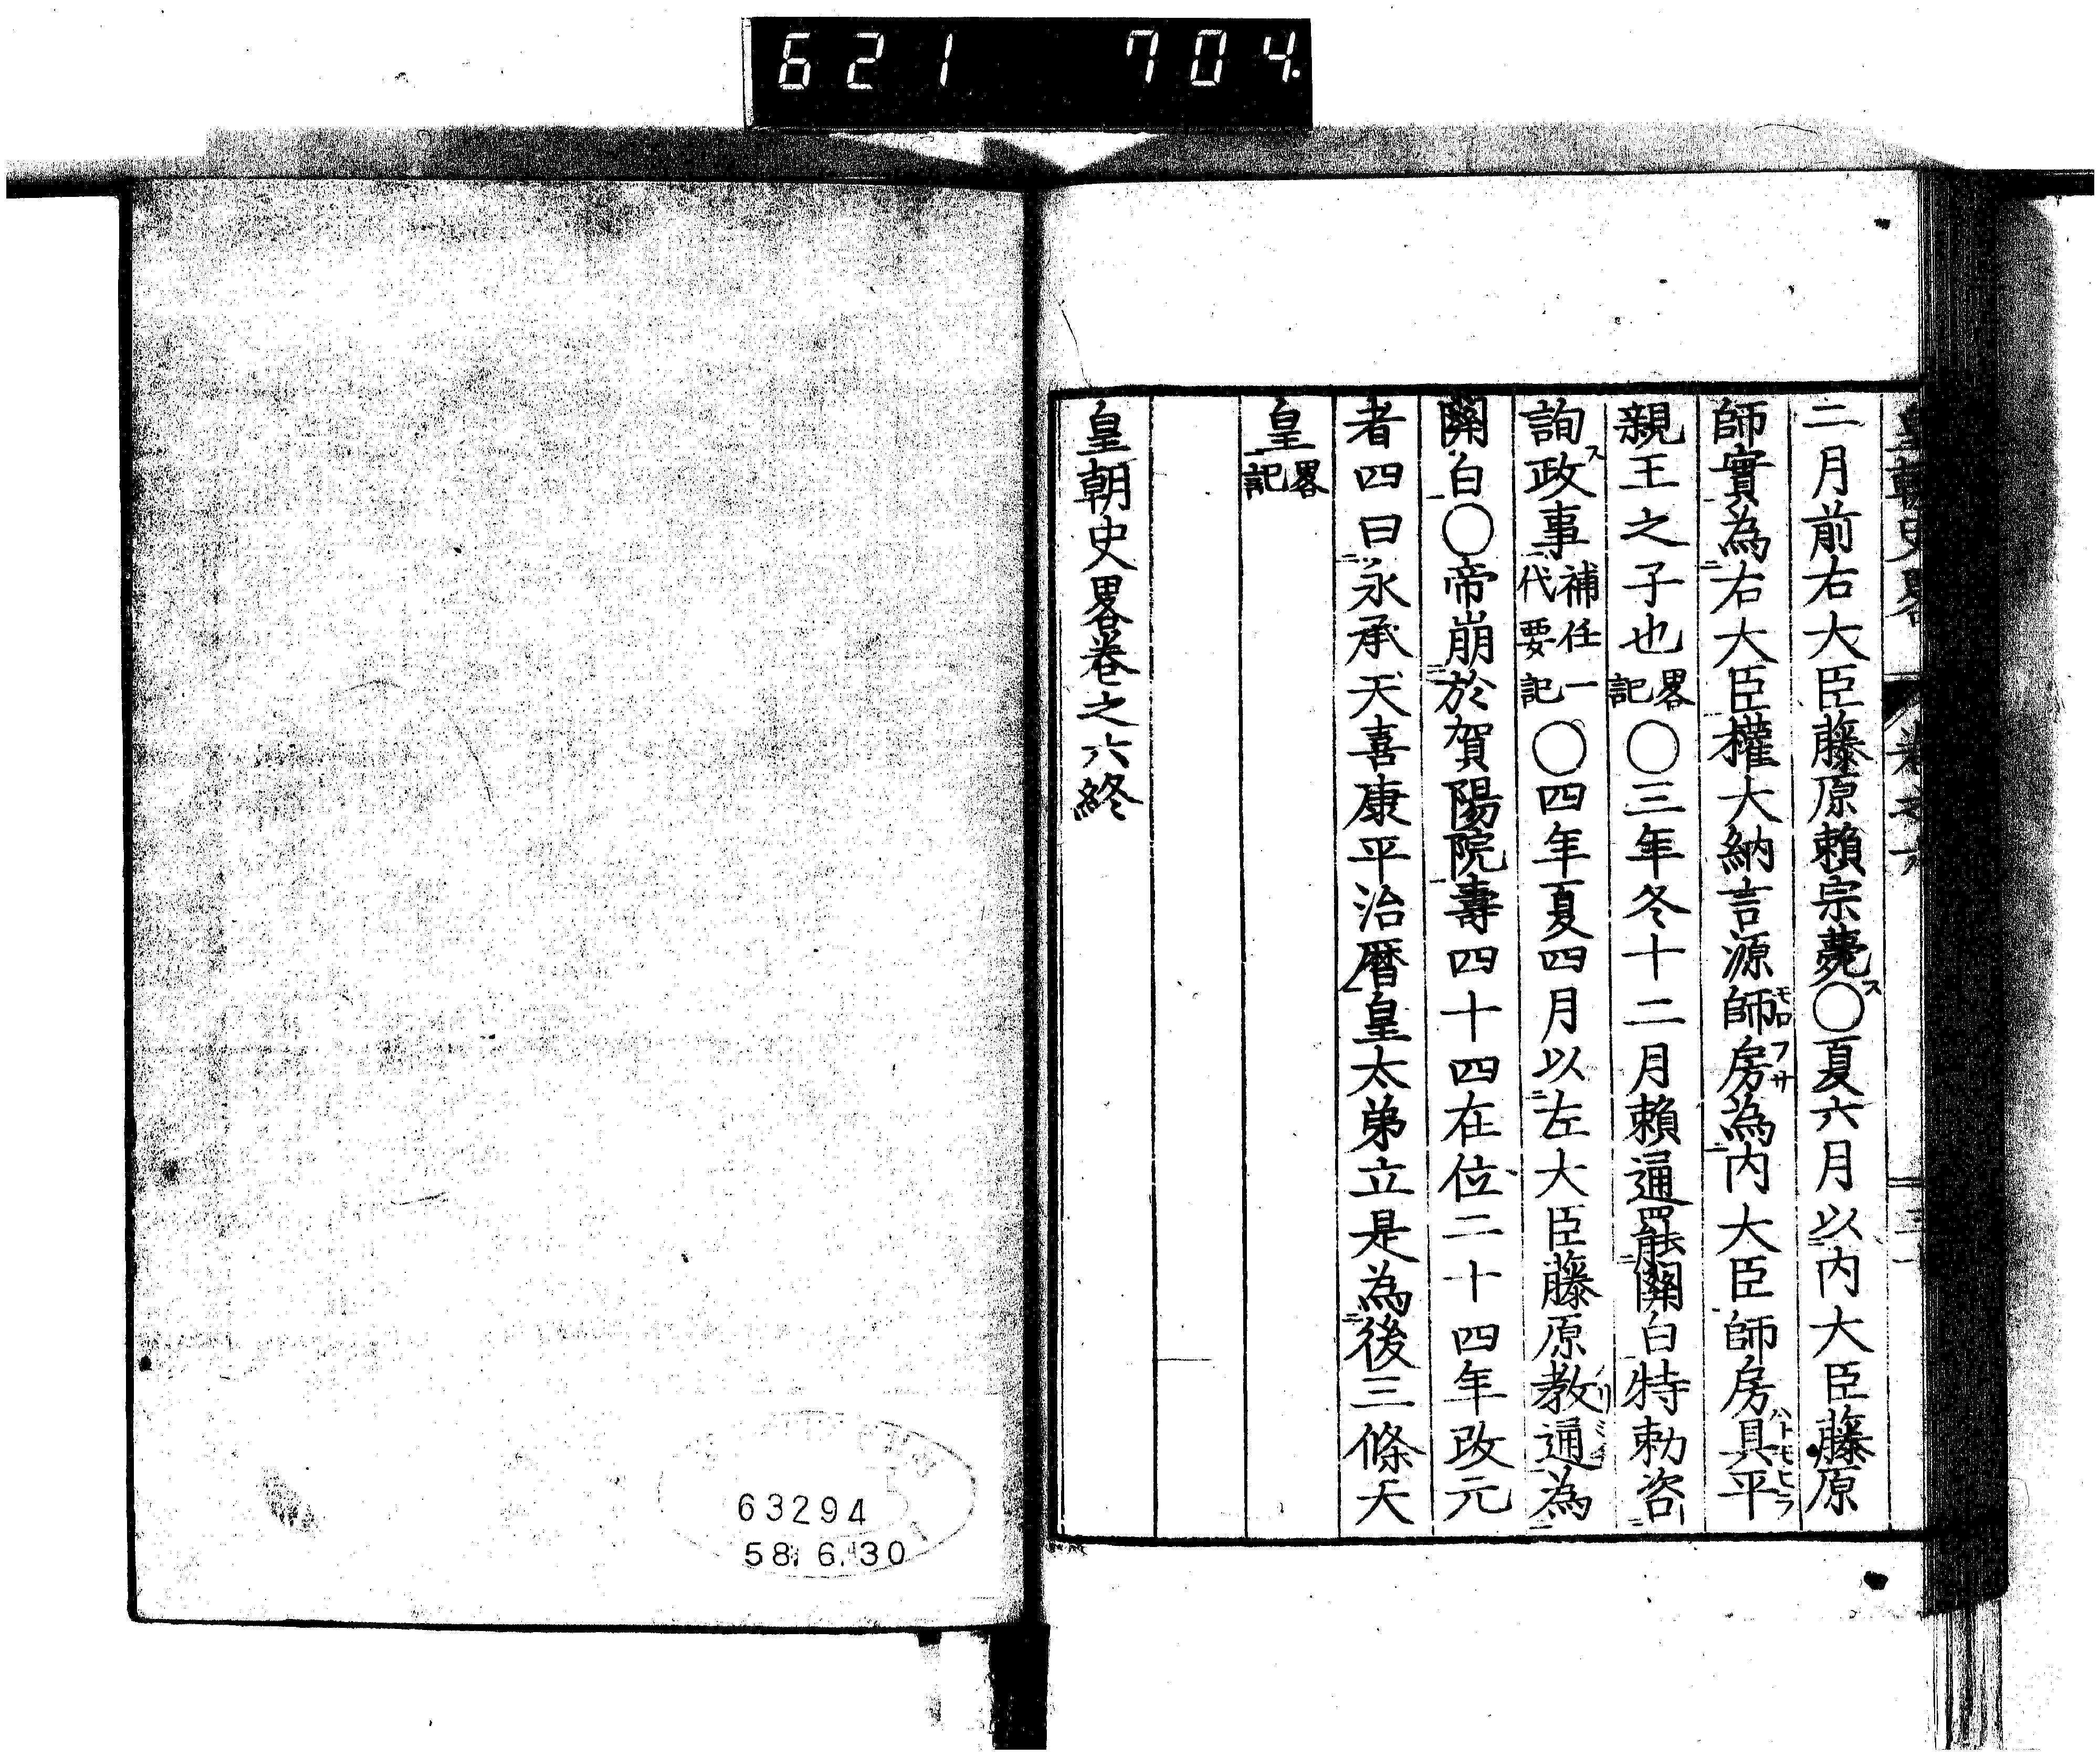 621 704
皇朝史畧 卷之六
二月前右大臣藤原賴宗薨ス〇夏六月以内大臣藤原
師實為右大臣權大納言源師房モロフサ為内大臣師房具平ハトモヒラ
親王之子也畧記〇三年冬十二月賴通罷關白特勅咨
詢ス政事補任一代要記〇四年夏四月以左大臣藤原教通為
關白〇帝崩於賀陽院壽四十四在位二十四年改元
者四曰永承天喜康平治暦皇太弟立是為後三條天
皇畧記
皇朝史畧卷之六終
63294
58. 6. 30